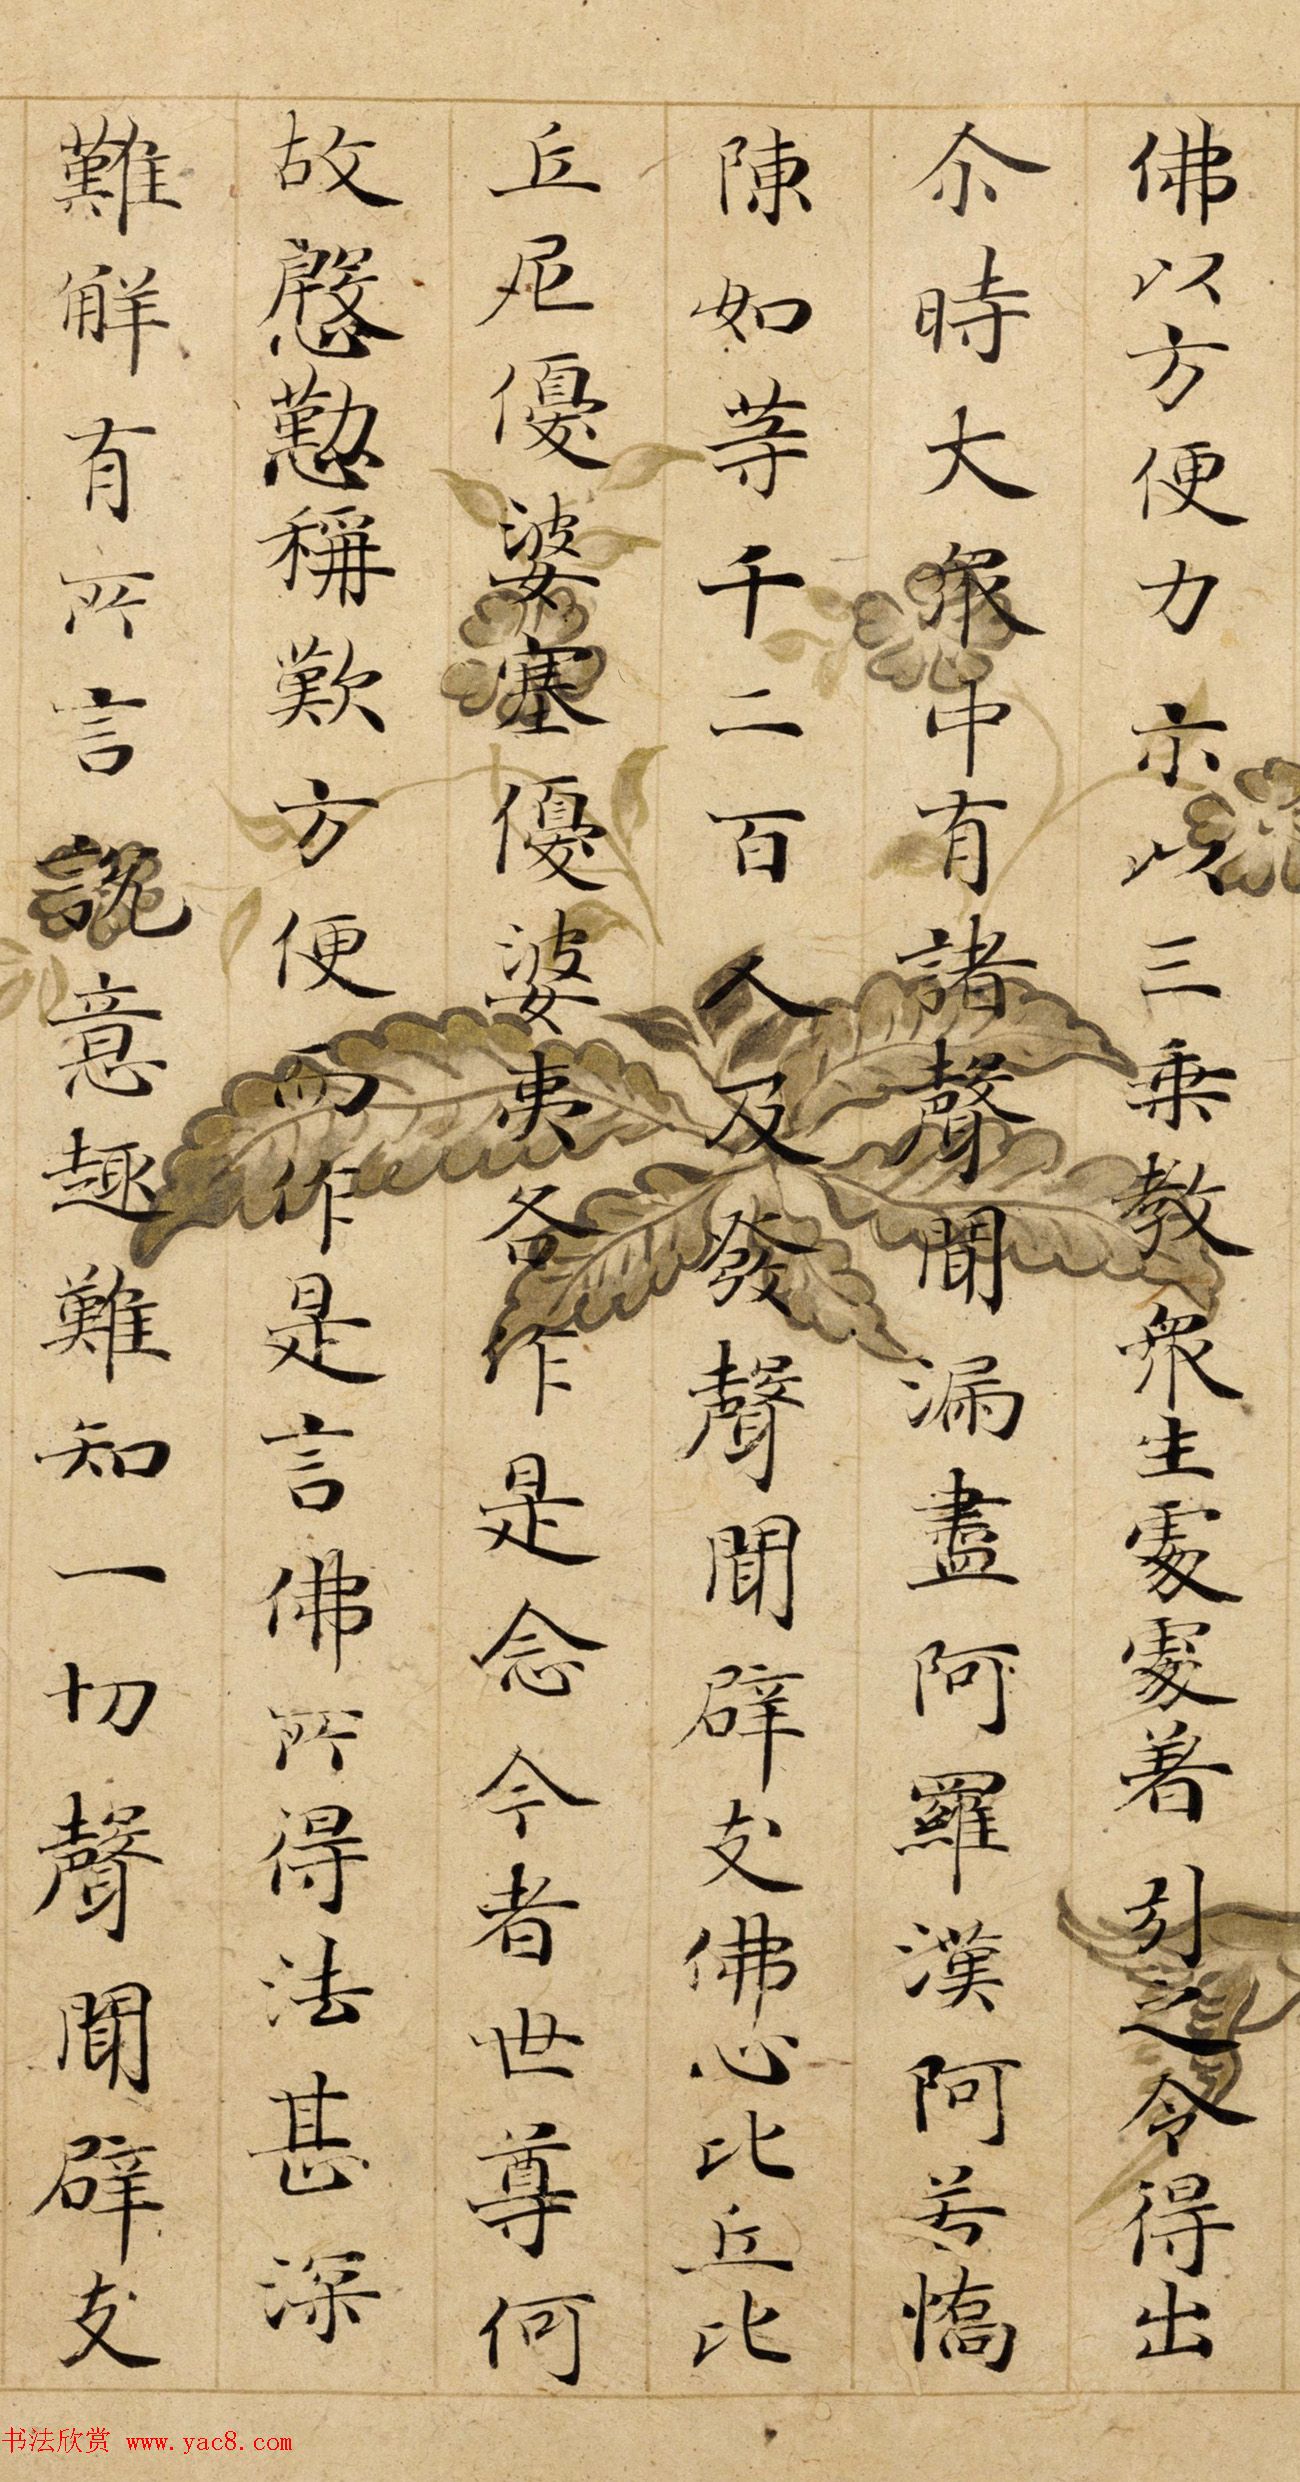 佛以方便力示以三乘教衆生處處著引之令得出
尒時大衆中有諸聲聞漏盡阿羅漢阿若憍
陳如等千二百人及發聲聞辟支佛心比丘比
丘尼優婆塞優婆夷各作是念今者世尊何
故慇懃稱歎方便而作是言佛所得法甚深
難解有所言說意趣難知一切聲聞辟支
书法欣赏 www.yac8.com